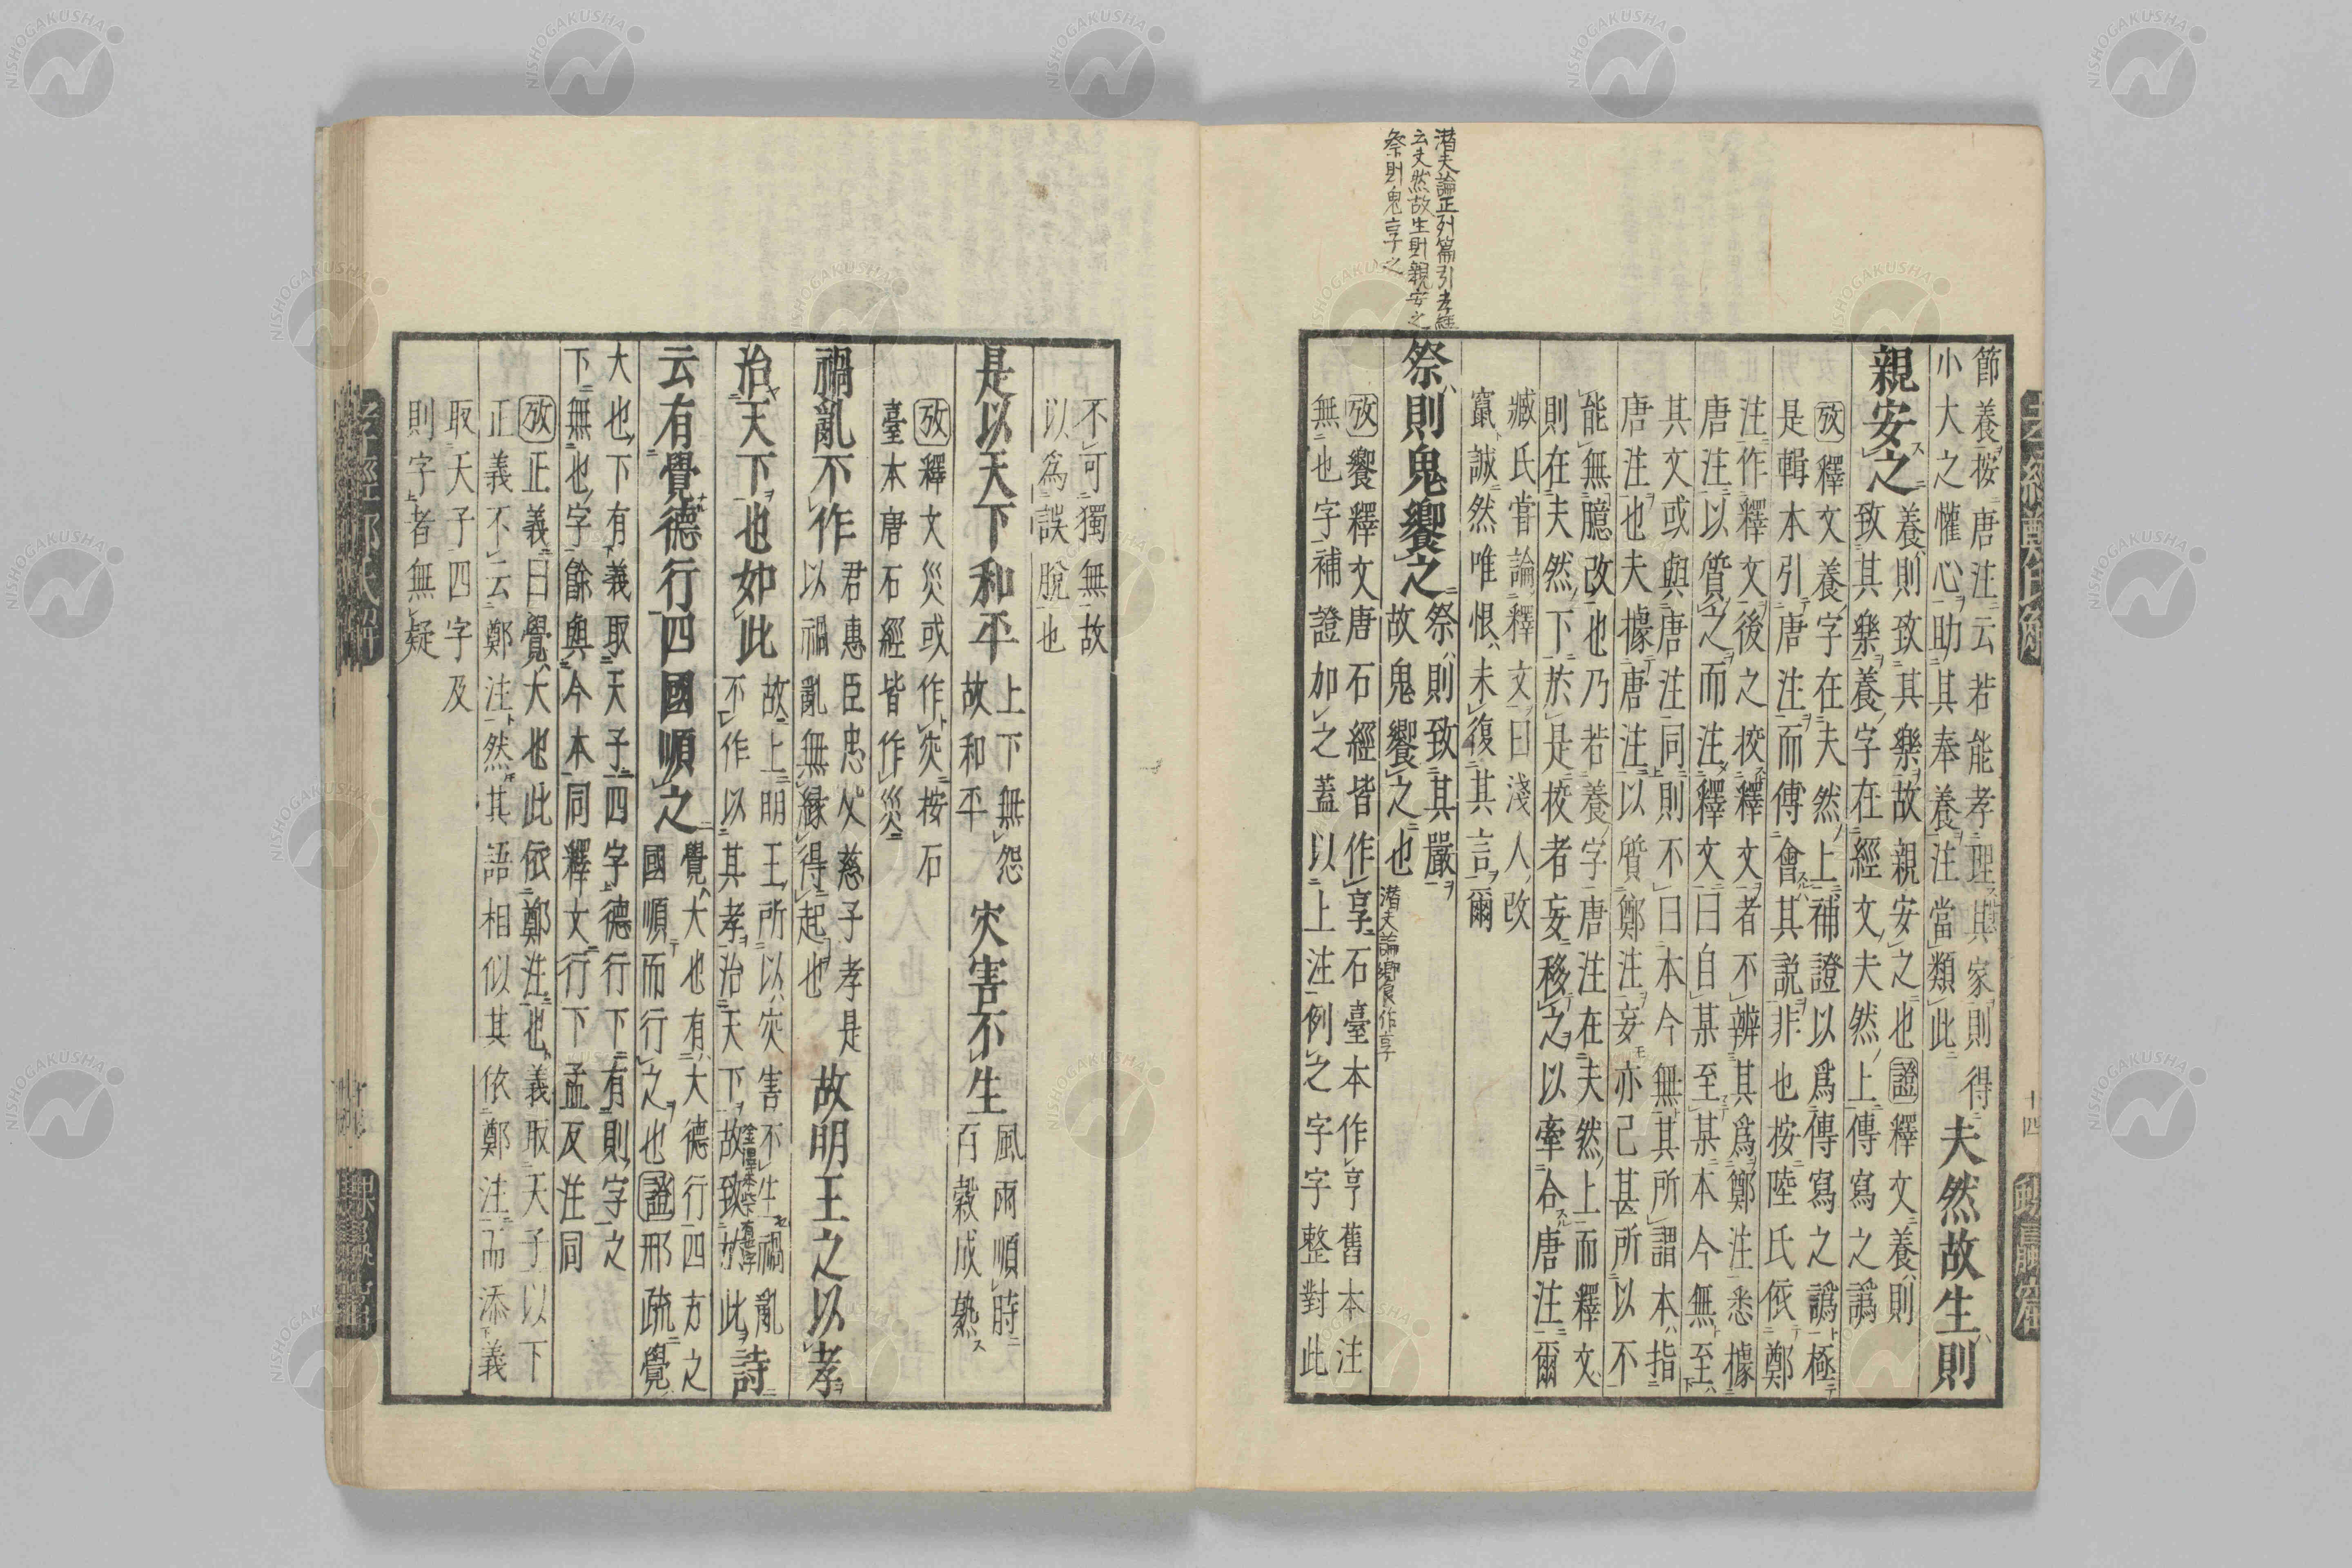 潜夫論正列篇引孝経
云夫然故生則親安之
祭則鬼享之
節養按唐注云若能孝理其家則得
小大之懽心助其奉養注當類此
夫然故生則
親安之
養則致其樂故親安之也證釋文養則
致其樂養字在經文夫然上傳寫之譌
攷釋文養字在夫然上補證以爲傳寫之譌極
是輯本引唐注而傅會其説非也按陸氏依鄭
注作釋文後之挍釋文者不辨其爲鄭注悉據
唐注以質之而注釋文曰自某至某本今無至
其文或與唐注同則不曰本今無其所謂本指
唐注也夫據唐注以質鄭注妄亦已甚所以不
能無臆改也乃若養字唐注在夫然上而釋文
則在夫然下於是挍者妄移之以牽合唐注爾
臧氏嘗論釋文曰淺人改
竄誠然唯恨未復其言爾
祭則鬼饗之
祭則致其嚴
故鬼饗之也
潜夫論饗作享
攷饗釋文唐石經皆作享石臺本作亨舊本注
無也字補證加之蓋以上注例之字字整對此
十四
不可獨無故
以爲誤脫也
是以天下和平
上下無怨
故和平
灾害不生
風雨順時
百穀成熟
攷釋文災或作灾按石
臺本唐石經皆作災
禍亂不作
君惠臣忠父慈子孝是
以禍亂無緣得起也
故明王之以孝
治天下也如此
故上明王所以灾害不生禍亂
不作以其孝治天下故致於此
詩
云有覺德行四國順之
覺大也有大德行四方之
國順而行之也證邢疏覺
大也下有義取天子四字德行下有則字之
下無也字餘與今本同釋文行下孟反注同
攷正義曰覺大也此依鄭注也義取天子以下
正義不云鄭注然其語相似其依鄭注而添義
取天子四字及
則字者無疑
孝經鄭氏解